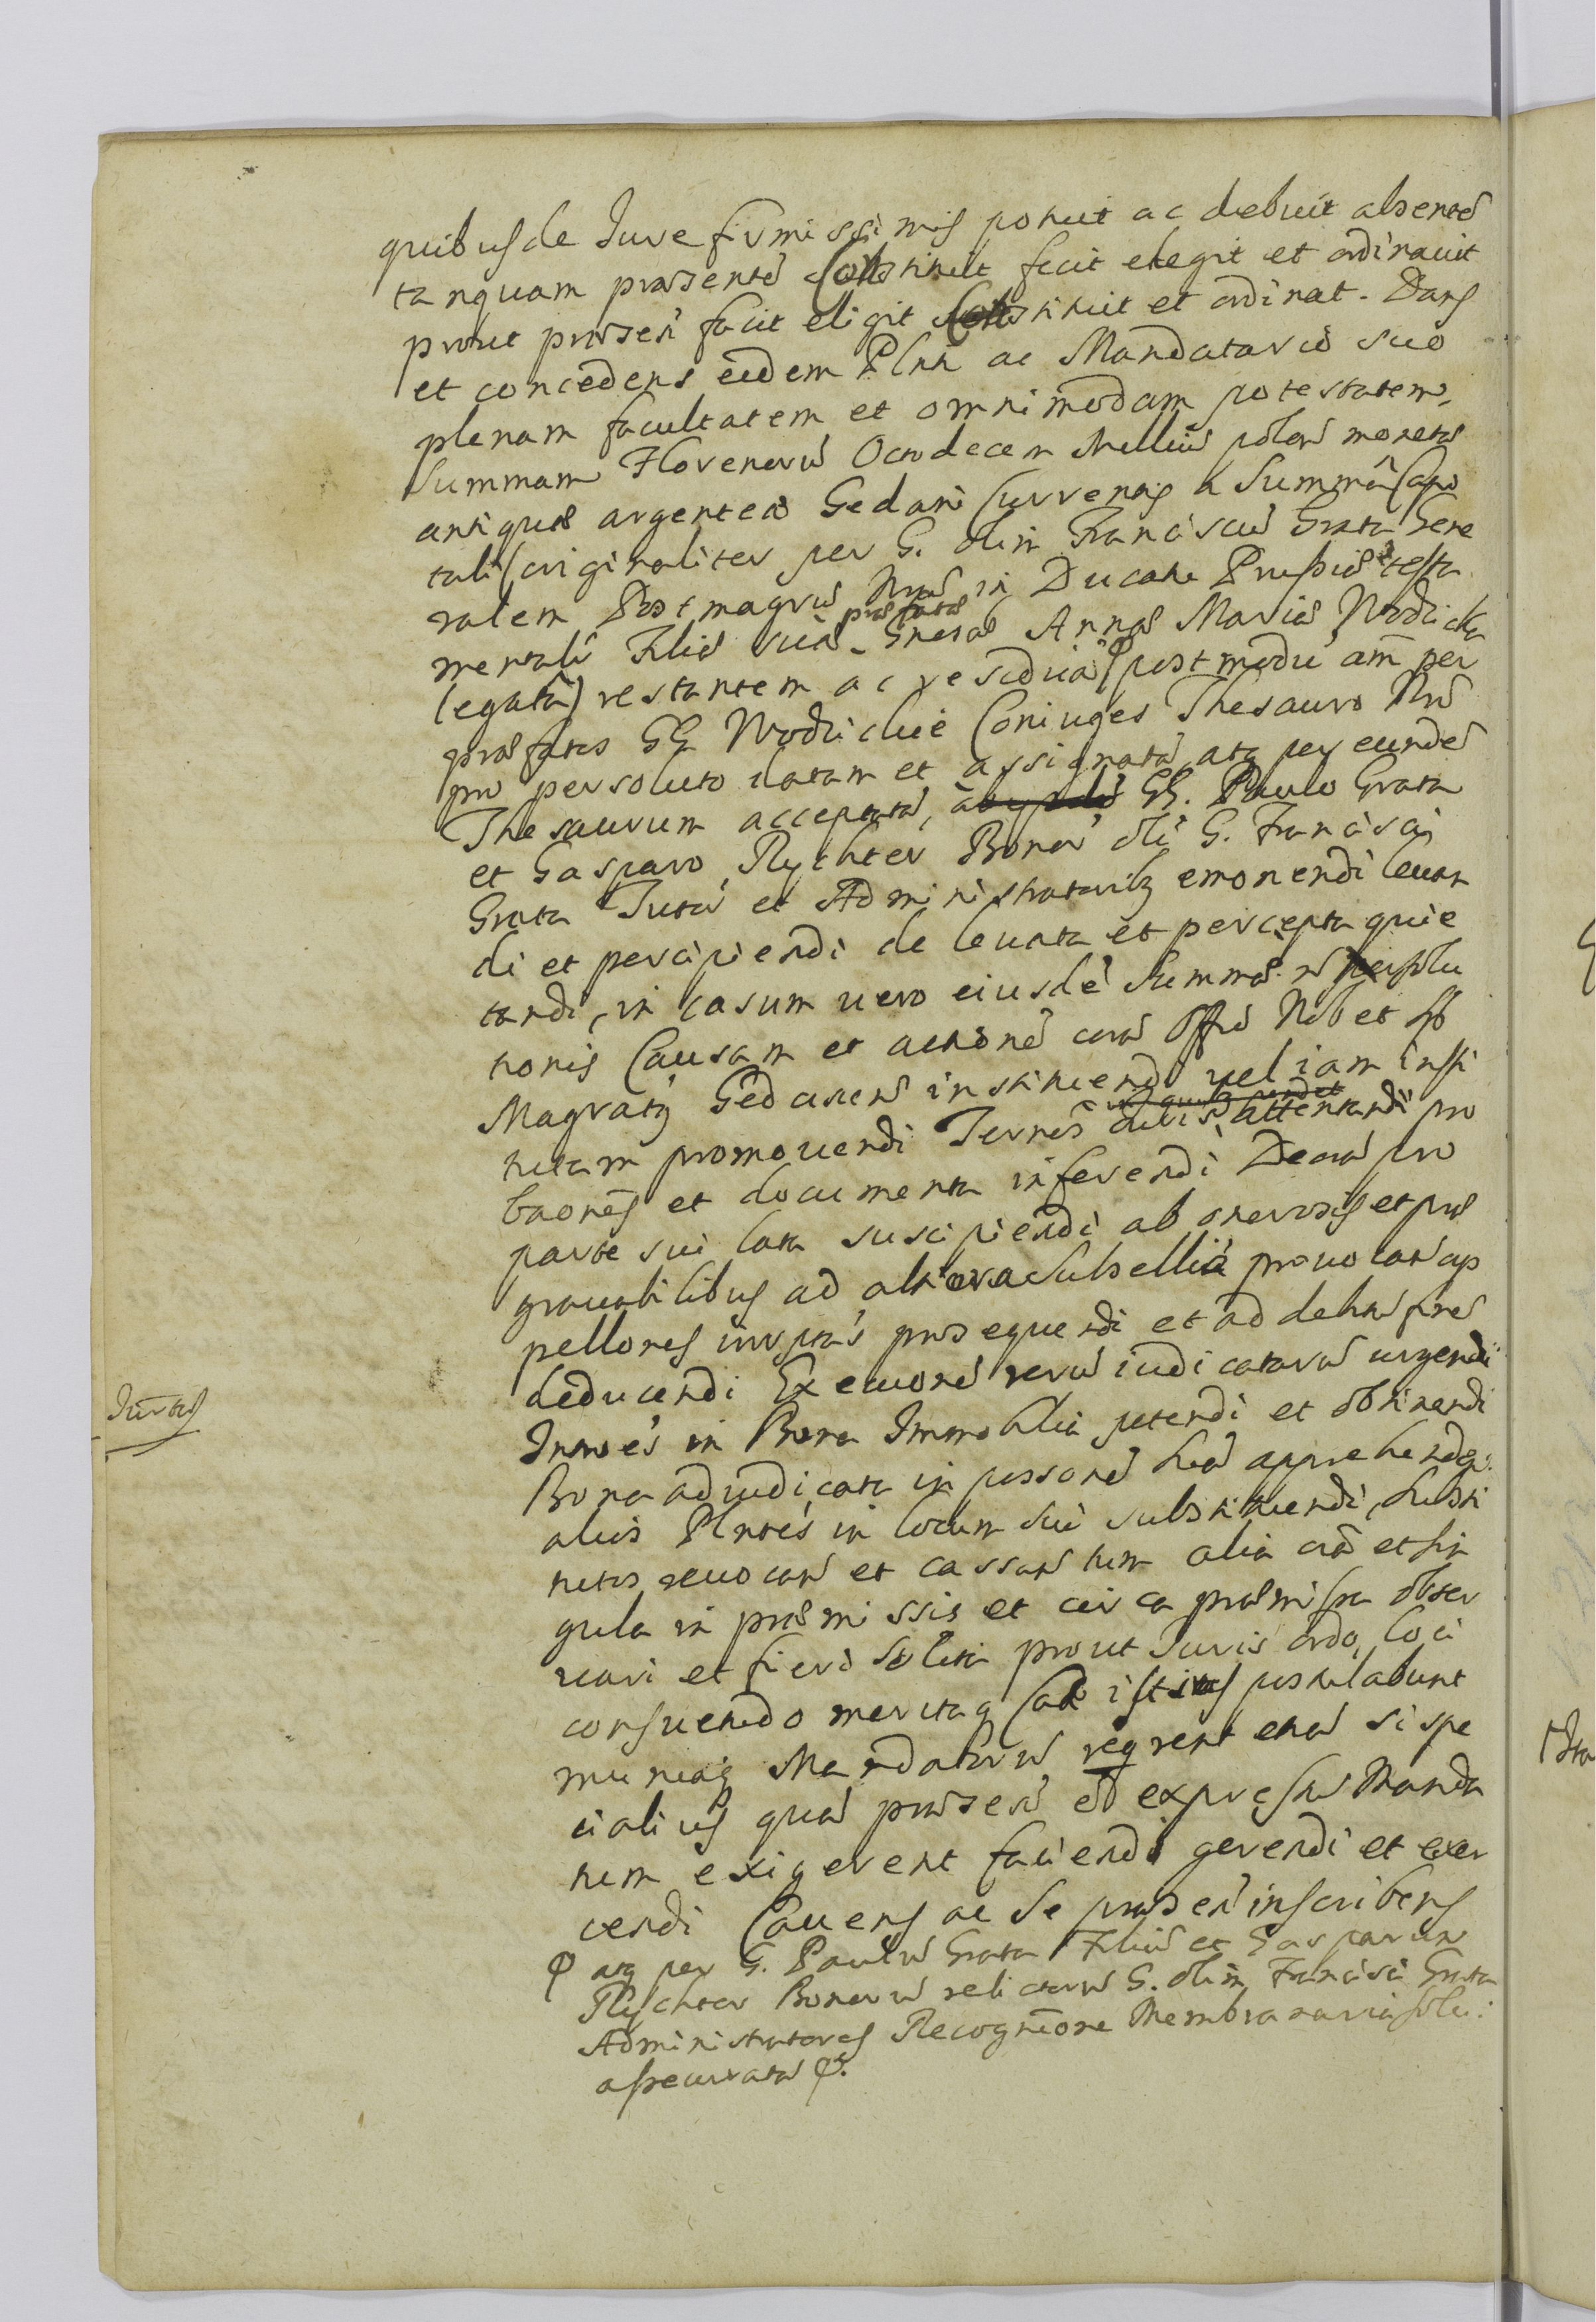 quibus de Jure firmissimis potuit ac debuit absente
tanquam præsente Constituit fecit elegit et ordinavit
prout præsen facit eligit Constituit et ordinat. Dans
et concedens eidem Plnti ac Mandatario suo
plenam facultatem et omnimodam potestatem,
Summam Florenorũ Octodecem Milliũ polon monetæ
antiquæ argenteæ Gedani Currentis a Summâ Capi
tali (originaliter per G. olim Franciscũ Grata Gene
ralem Postmagrũ Nrũ in Ducatu Prussiæ testa
mentali Filiæ suæ præfatæ Gnerosæ Annæ Mariæ Wodzicka
legata) restantem ac residuã postmodũ am̃ per
præfatos GG Wodzickie Coniuges Thesauro Nro
pro persoluto datam et assignatã atq per eundẽ
Thesaurum acceptatã, GG. Paulo Grata
et Gasparo Rychter Bonor oli G. Francisci
Grata Tutor et Administratoribq emonendi levan
di et percipiendi de levata et percepta quie
tandi, in casum vero eiusdẽ Summæ n persolu
tionis Causam et actionẽ corã Offo Nob et Sp
Magratq Gedanen instituendi vel iam insti
tutam promovendi Ternos attentandi pro
baones et documenta inferendi Decrã pro
parte sui lata suscipiendi ab onerosis et præ
gravabilibus ad altiora Subsellia provocan ap
pellones prosequendi et ad debitũ finẽ
deducendi Executionẽ rerũ iudicatarũ urgendi
Intromes in Bona Immobilia petendi et obtinendi
Bona adiudicata in possonẽ suã apprehenden
alios Plntes in locum sui substituendi, substi
tutos revocan et cassan tum alia oia et sin
gula in præmissis et circa præmissa obser
vari et fieri solita prout Juris ordo, loci
consuetudo meritaq Causæ istius postulabunt
muniaq Mandatorũ reqrent etiã si spe
cialius quã præsen est expressũ Manda
tum exigerent faciendi gerendi et exer
cendi Cavens ac se præsen inscribens
φ atq per G. Paulũ Grata Filiũ et Gasparum
Rychter Bonorũ relictorũ G. olim Francisci Grata
Administratores Recognitione Membranaria solu:
assecuratã φ.
Juratus